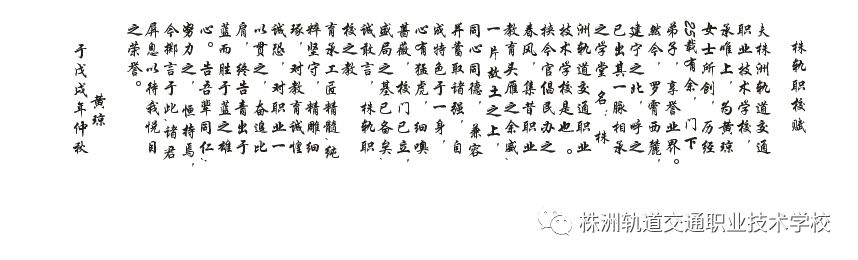 株轨职校赋
夫株洲轨道交通
职业技术学校，
承唯上，为黄琼
女士所创，历经
25载有余，门下
弟子，享誉业界。
然今，罗霄西麓，
建宁之北，呼之
已出其一脉相承
之学堂，名：株
洲轨道交通职业
技术学校是也。
挟令官倡民办之
春风，集昔职业
教育头雁之余威，
一片故土之上，
同心同德，兼容
并蓄取诸强，自
成特色于一身，
心有猛虎，细嗅
蔷薇，校门已立，
盛局之基已备矣，
诚敢言，株轨职
校之教
育承工匠精髓，纯
粹坚守，精雕细
琢，对教育诚惶
诚恐，对职业一
以贯之，奋追比
肩，终告青出于
蓝而胜于蓝之雄
心。告吾辈同仁，
努力之，恒持焉，
今掷言于此，诸君
屏息以待我悦目
之荣誉。
黄琼
于戊戌年仲秋
株洲轨道交通职业技术学校